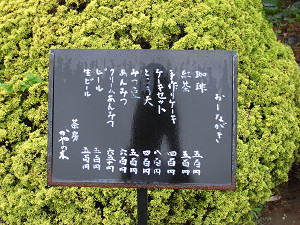 おしながき
珈琲 五百円
紅茶 五百円
手作りケーキ 四百円
ケーキセット 八百円
ところ天 四百円
みつ豆 五百円
あんみつ 六百円
クリームあんみつ 六五十円
ビール 五百円
生ビール 五百円
茶房
かやの木